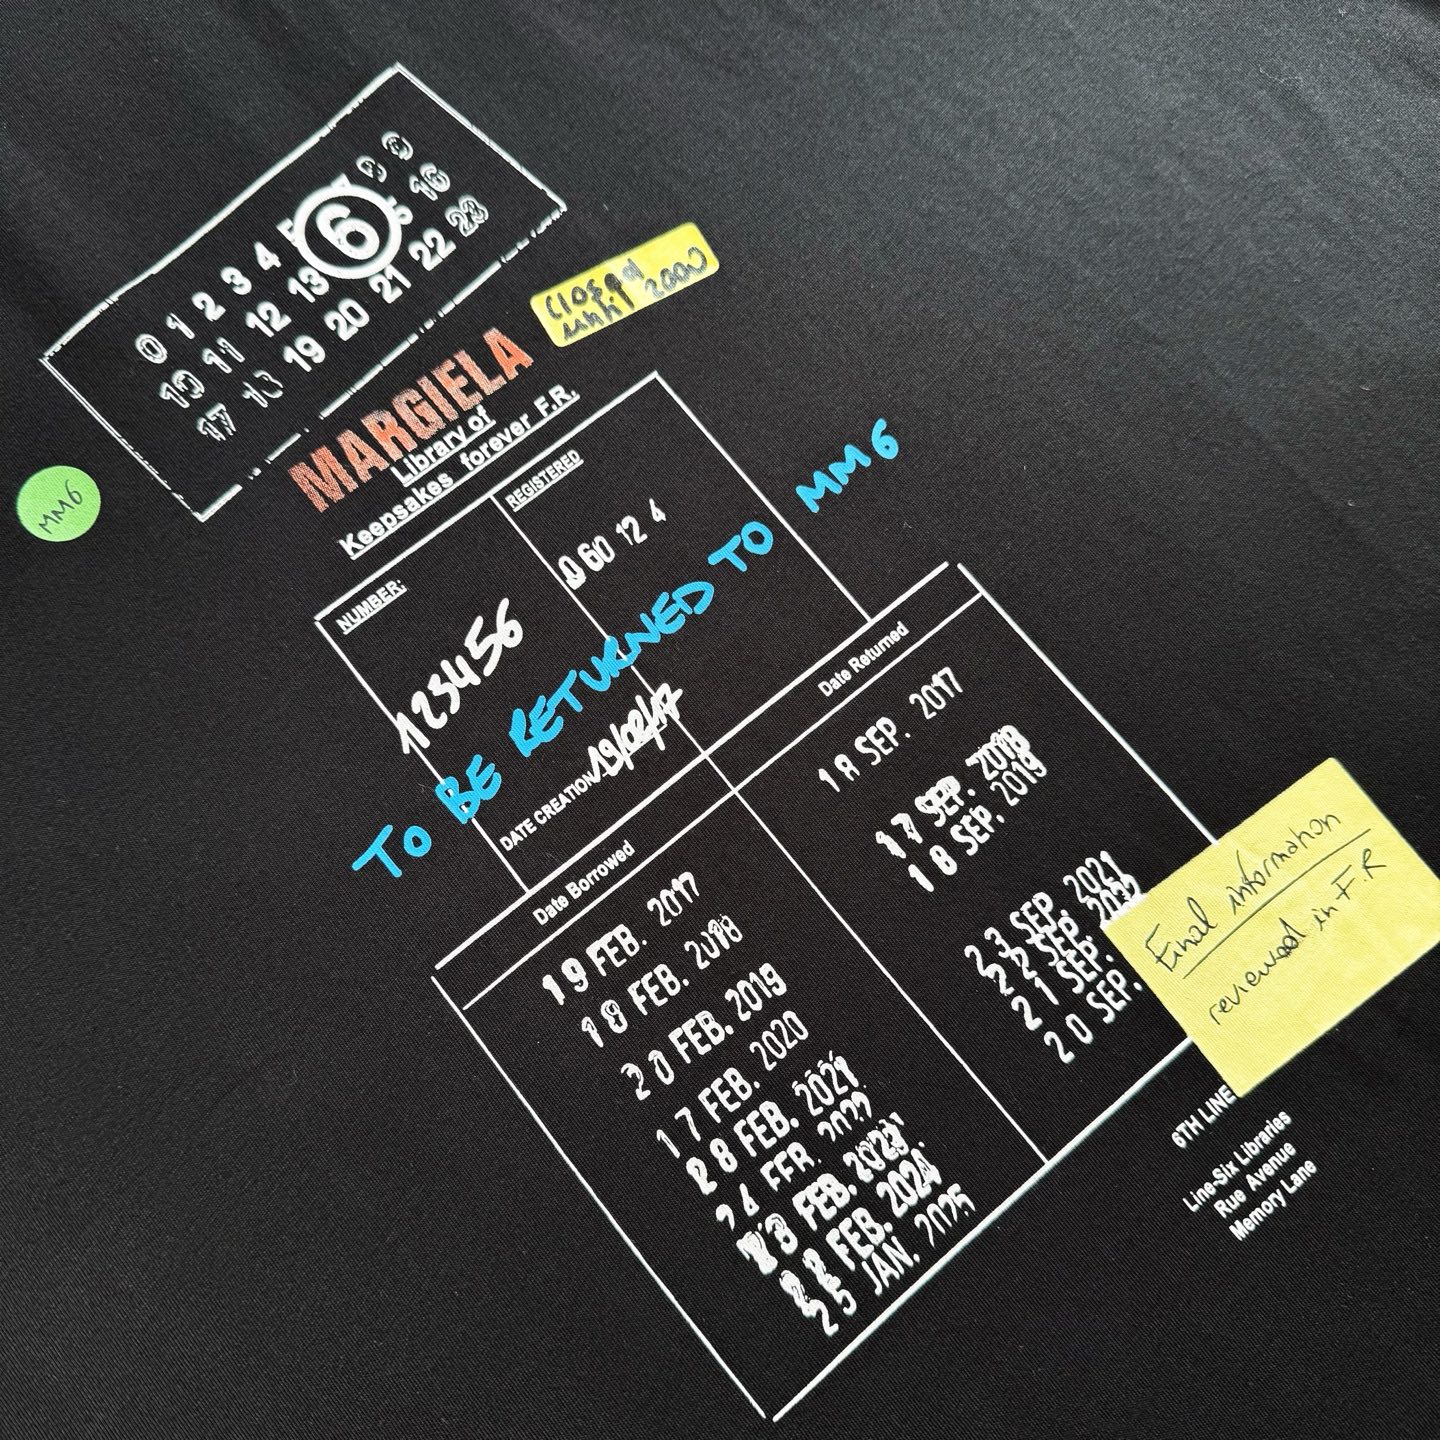 0 1 2 3 4 5 6
10 11 12 13 16
17 18 19 20 21 22 23
Closed
until 2000
MARGIELA
Library of
Keepsakes forever F.R.
MM6
NUMBER:
123456
REGISTERED
060 12 4
TO BE RETURNED TO MM6
DATE CREATION 19/02/17
Date Borrowed
19 FEB. 2017
18 FEB. 2018
20 FEB. 2019
17 FEB. 2020
28 FEB. 2021
24 FEB. 2022
23 FEB. 2023
22 FEB. 2024
25 JAN. 2025
Date Returned
18 SEP. 2017
17 SEP. 2018
18 SEP. 2019
23 SEP. 2021
22 SEP. 2022
21 SEP.
20 SEP.
Final information
reviewed in F.R
6TH LINE
Line-Six Libraries
Rue Avenue
Memory Lane